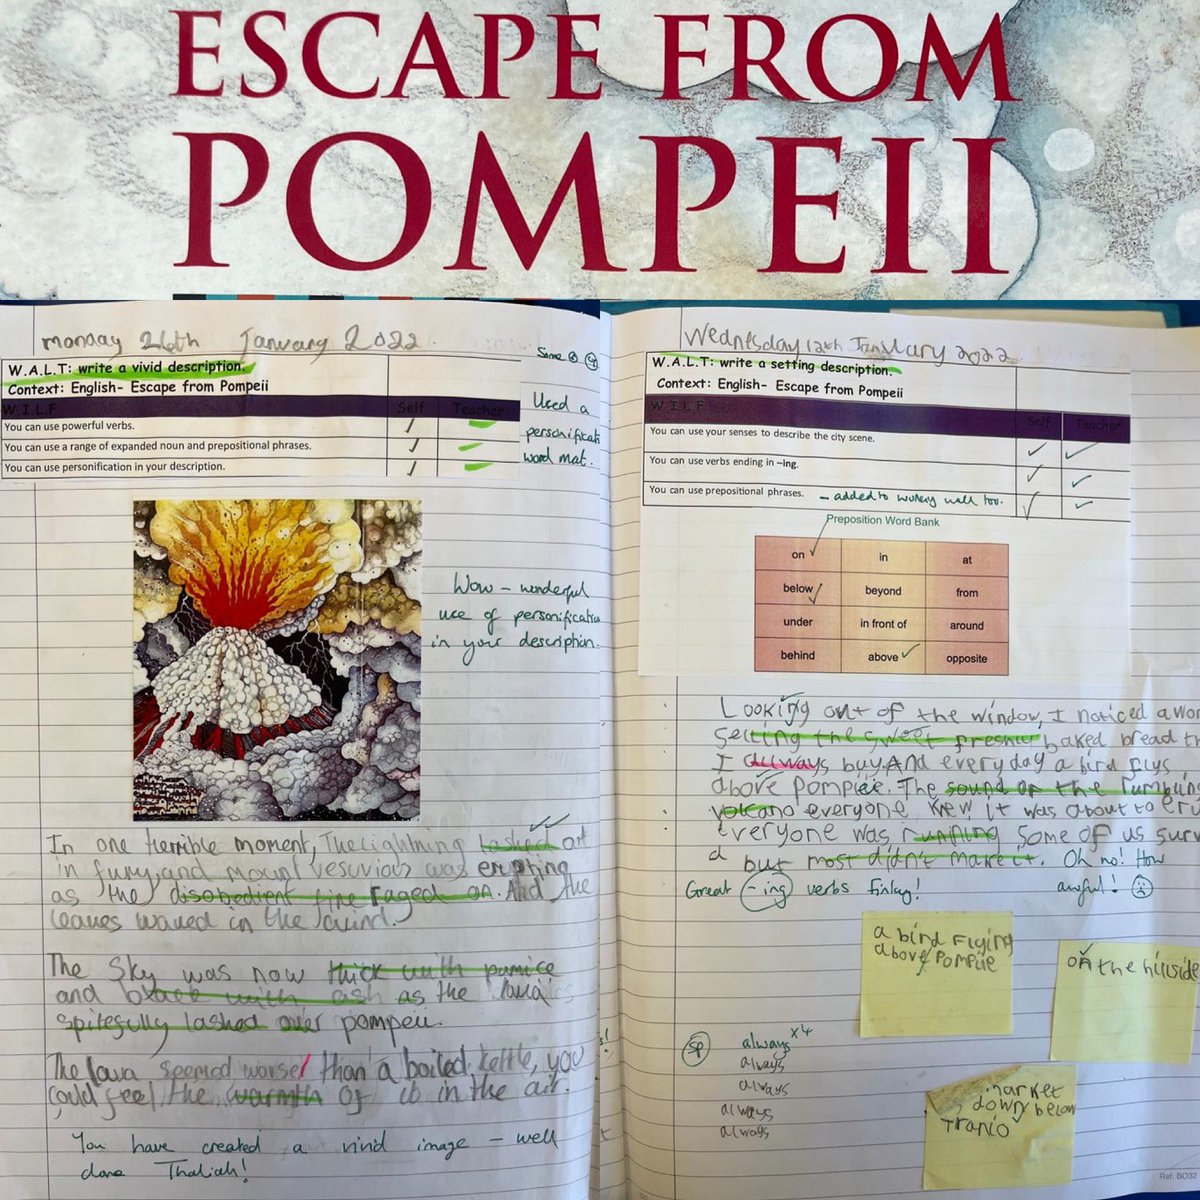 ESCAPE FROM
POMPEII
monday 24th January 2022.
W.A.L.T: write a vivid description.
Context: English- Escape from Pompeii
W.I.L.F Self Teacher
You can use powerful verbs.
You can use a range of expanded noun and prepositional phrases.
You can use personification in your description.
Used a
personificati
word mat.
Wow - wonderful
use of personification
in your description.
In one terrible moment, The lightning lashed out
in fury, and mount vesuvius was erupting
as the disobedient fire raged on. And the
leaves waved in the wind.
The Sky was now thick with pumice
and black with ash as the lava
spitefully lashed over pompeii.
The lava seemed worse than a boiled kettle, you
could feel the warmth of it in the air.
You have created a vivid image - well
done Thaliah!
Wednesday 12th January 2022
W.A.L.T: write a setting description.
Context: English- Escape from Pompeii
W.I.L.F Self Teacher
You can use your senses to describe the city scene.
You can use verbs ending in –ing.
You can use prepositional phrases. - added to working wall too.
Preposition Word Bank
on in at
below beyond from
under in front of around
behind above opposite
Looking out of the window, I noticed a wo
selling the sweet freshly baked bread th
I allways buy. And every day a bird flys
above Pompeie. The sound of the rumbling
volcano everyone knew it was about to eru
everyone was running some of us surv
d but most didn't make it. Oh no! How
Great -ing verbs Finlay! awful!
a bird Flying
above Pompiie
on the hillside
sp always x4
always
always
always
always
market
down below
Tranio
Ref: BO32